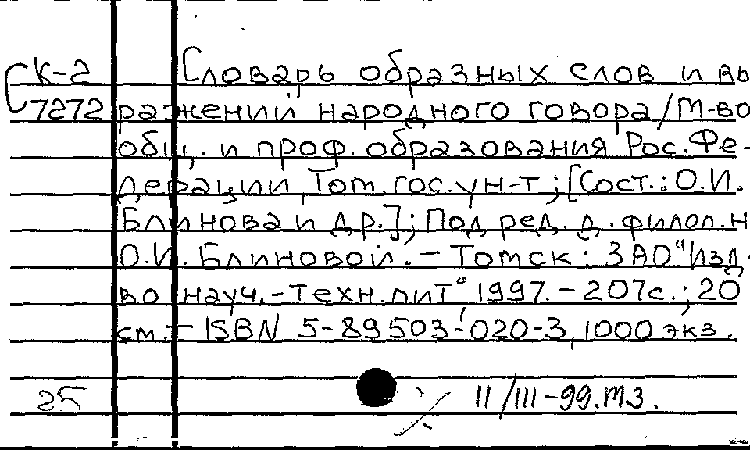 СК-2 Словарь образных слов и вы
7272 ражений народного говора/М-во
общ. и проф. образования Рос. Фе-
дерации, Том. гос. ун-т; [Сост.: О.И.
Блинова и др.]; Под ред. д. филол. н
О.И. Блиновой. – Томск: ЗАО "Изд-
во науч.-техн. лит" 1997. – 207с.; 20
см. – ISBN 5-89503-020-3, 1000 экз.
25 11/III-99. МЗ.